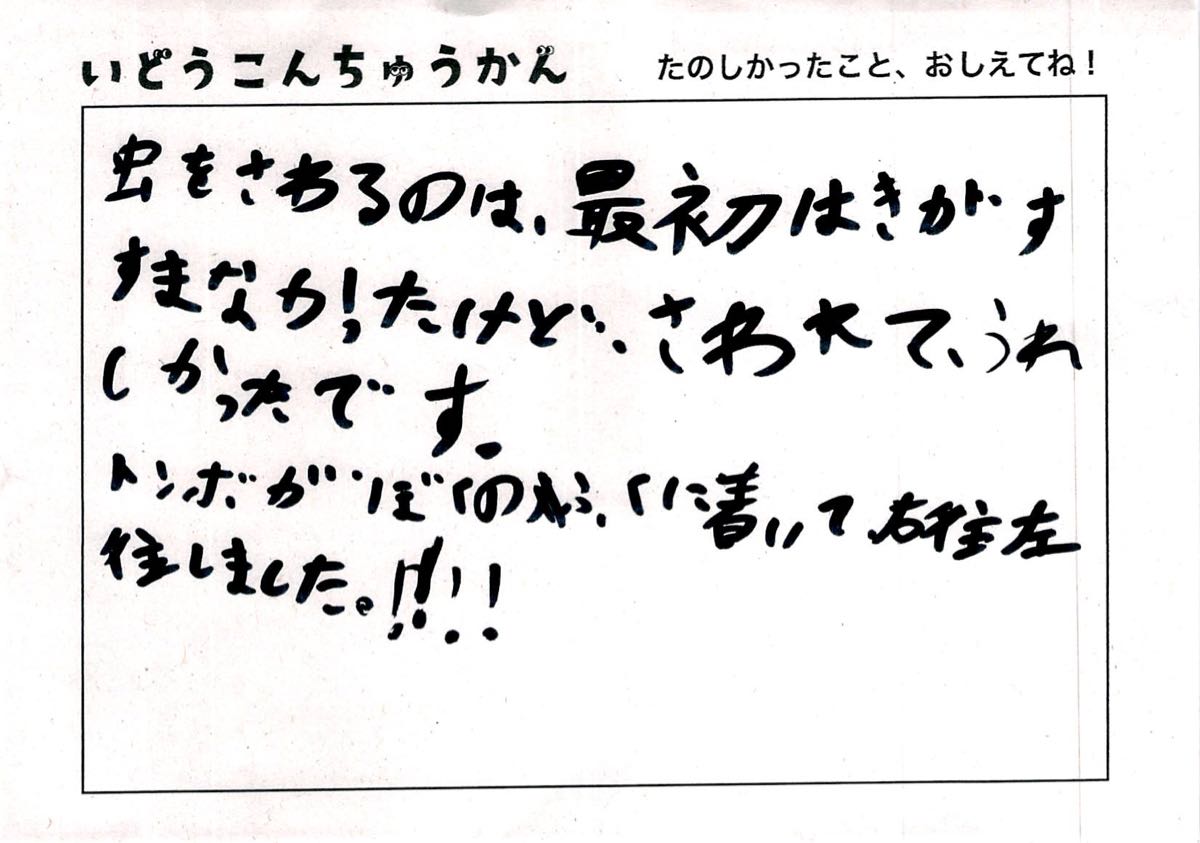 いどうこんちゅうかん
たのしかったこと、おしえてね！
虫をさわるのは、最初はきがす
すまなかったけど、さわれて、うれ
しかったです。
トンボがぼくのふくに着いて、右往左
往しました。!!!!